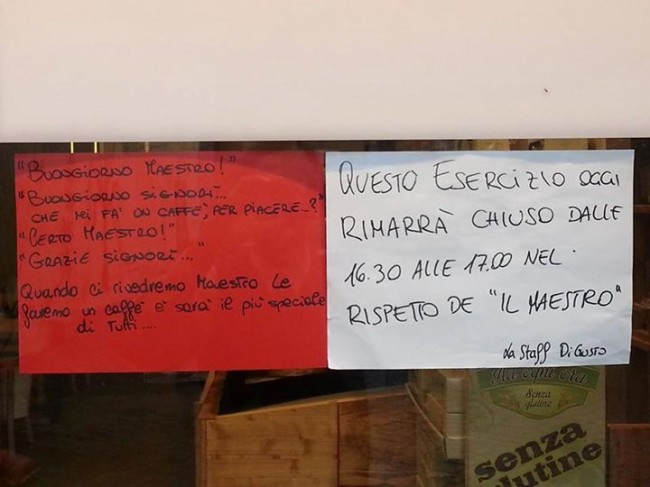 "BUONGIORNO MAESTRO!"
"BUONGIORNO SIGNORI...
CHE MI FA' UN CAFFE', PER PIACERE...?"
"CERTO MAESTRO!"
"GRAZIE SIGNORI..."
Quando ci rivedremo Maestro Le
faremo un caffè è sarà il più speciale
di Tutti....
QUESTO ESERCIZIO OGGI
RIMARRÀ CHIUSO DALLE
16.30 ALLE 17.00 NEL
RISPETTO DE "IL MAESTRO"
La Staff Di Gusto
Senza
glutine
senza
glutine